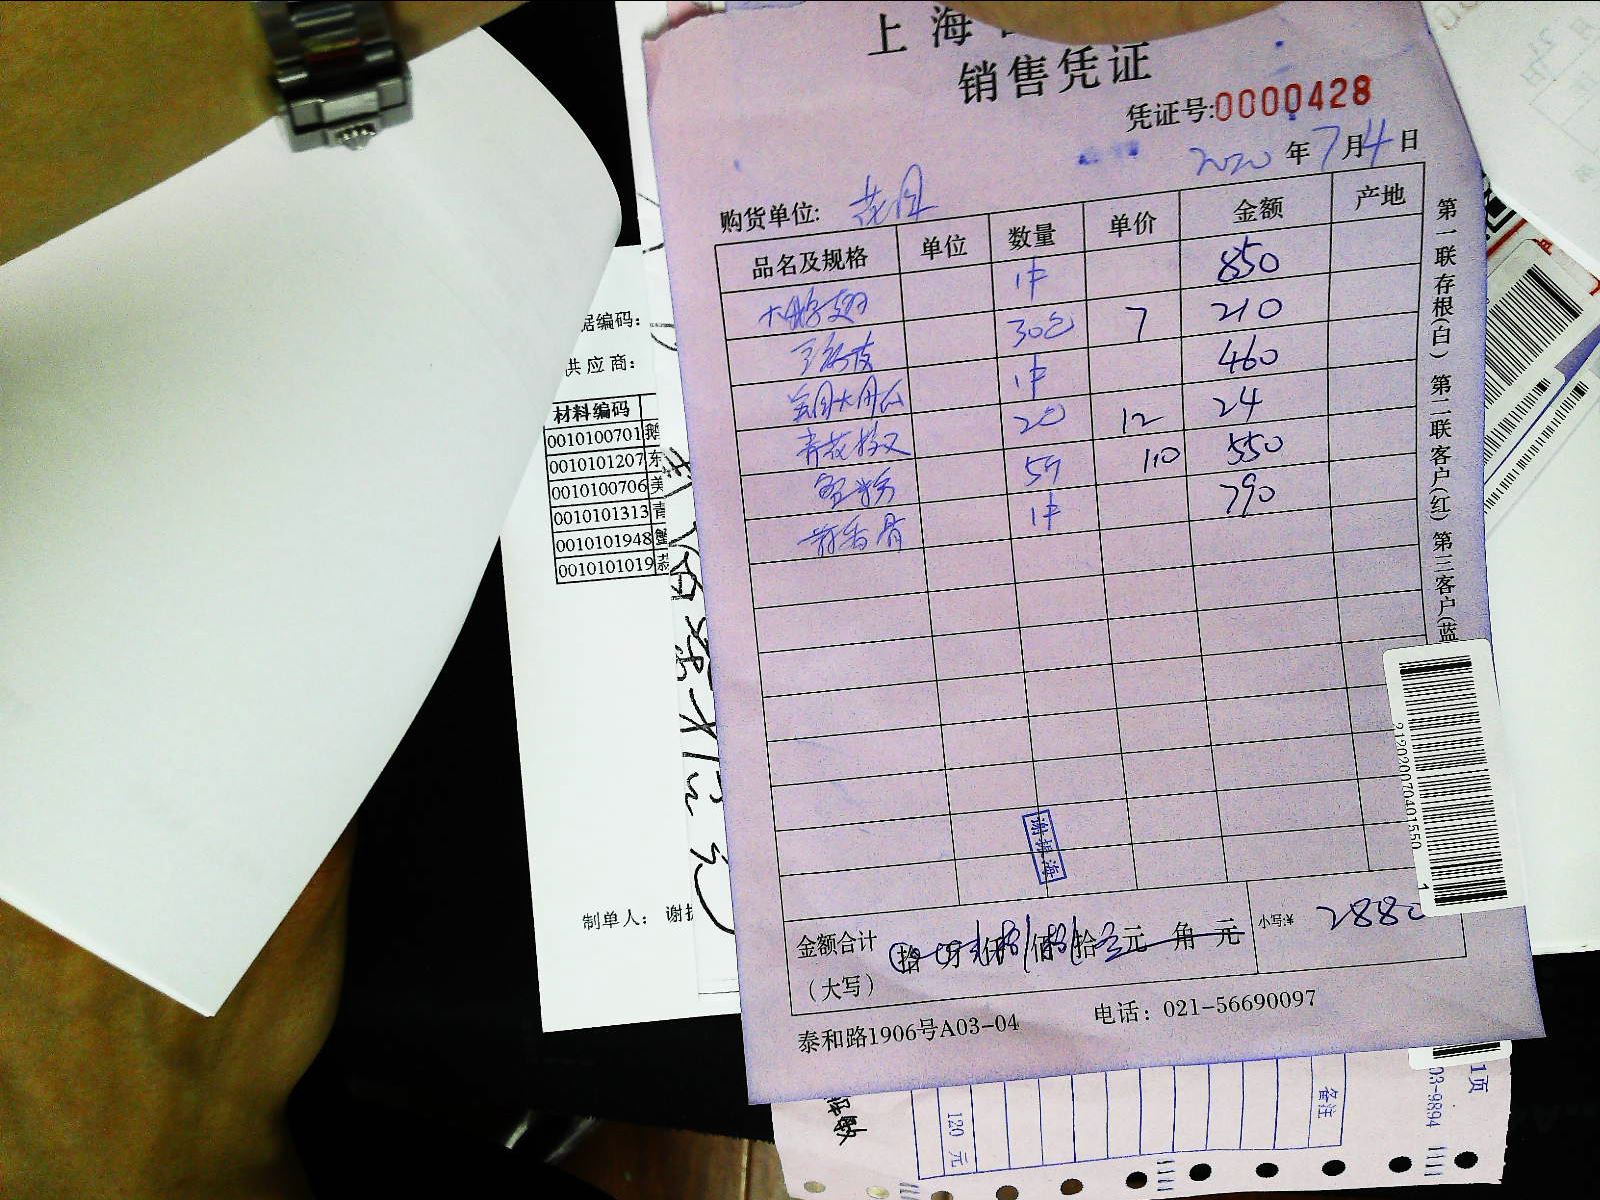 上海
销售凭证
凭证号:0000428
2020年7月4日
购货单位: 花月
品名及规格 单位 数量 单价 金额 产地
大鹅翅 1件 850
30包 7 210
1件 460
青花 20 12 24
蟹 5斤 110 550
蒜香骨 1件 790
谢振海
金额合计
(大写)
拾 万 仟 佰 拾 元 角 元
小写:¥ 2880
泰和路1906号A03-04 电话: 021-56690097
第一联存根(白) 第二联客户(红) 第三客户(蓝
212020070401550 1
据编码:
供应商:
材料编码
0010100701 鹅
0010101207 东
0010100706 美
0010101313 青
0010101948 蟹
0010101019 蒜
制单人: 谢振
1页
03-9894
备注
120 元